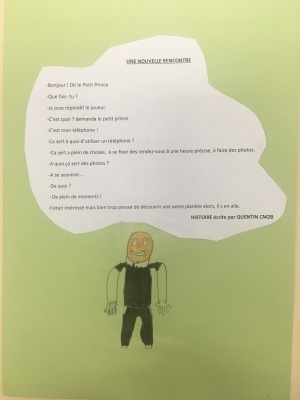 UNE NOUVELLE RENCONTRE
-Bonjour ! Dit le Petit Prince
-Que fais- tu ?
-Je joue répondit le joueur.
-C'est quoi ? demanda le petit prince
-C'est mon téléphone !
-Ca sert à quoi d'utiliser un téléphone ?
-Ca sert a plein de choses, à se fixer des rendez-vous à une heure précise, à faire des photos.
-A quoi ça sert des photos ?
-A se souvenir...
-De quoi ?
- De plein de moments !
Il était intéressé mais bien trop pressé de découvrir une autre planète alors, il s en alla.
HISTOIRE écrite par QUENTIN CM2B